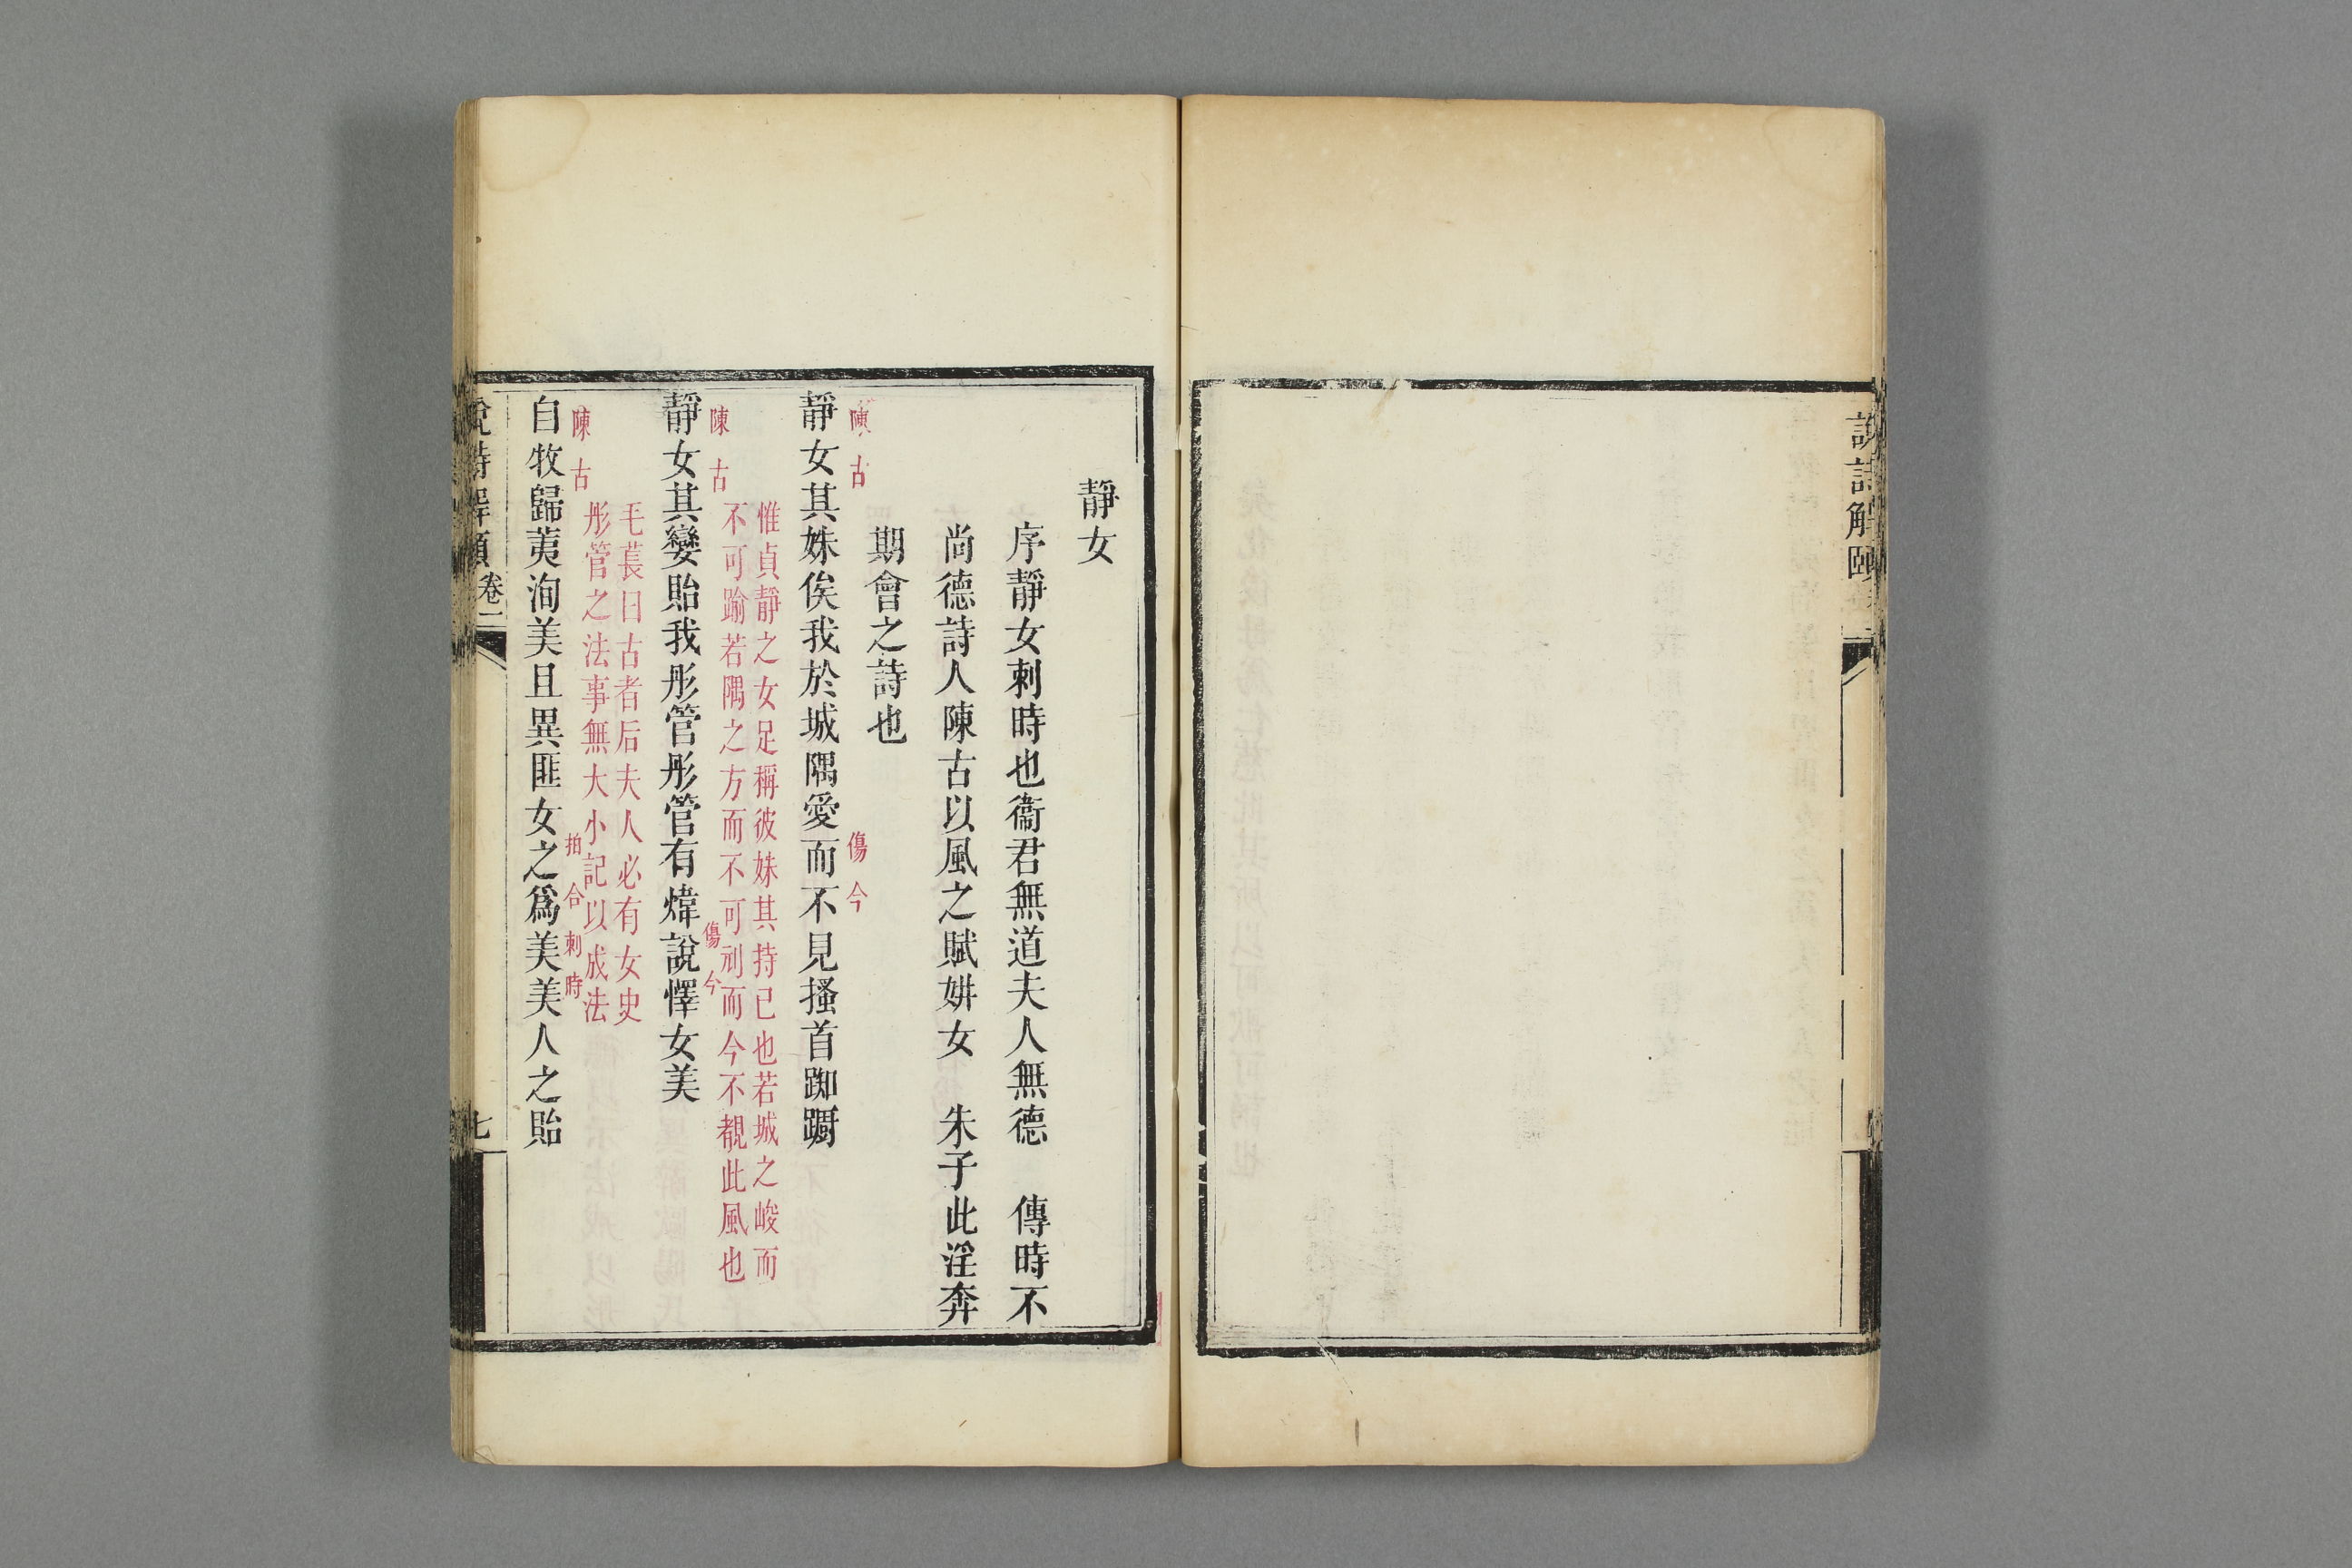 說詩解頤
靜女
序靜女刺時也衞君無道夫人無德　傳時不
尚德詩人陳古以風之賦姘女　朱子此淫奔
期會之詩也
陳古
傷今
靜女其姝俟我於城隅愛而不見搔首踟躕
惟貞靜之女足稱彼姝其持已也若城之峻而
不可踰若隅之方而不可刓而今不覩此風也
陳古
傷今
靜女其孌貽我彤管彤管有煒說懌女美
毛萇曰古者后夫人必有女史
彤管之法事無大小記以成法
陳古
拍合刺時
自牧歸荑洵美且異匪女之爲美美人之貽
說詩解頤
卷一
七